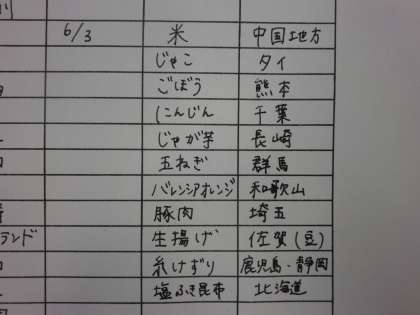 6/3 米 中国地方
じゃこ タイ
ごぼう 熊本
にんじん 千葉
じゃが芋 長崎
玉ねぎ 群馬
バレンシアオレンジ 和歌山
豚肉 埼玉
ランド 生揚げ 佐賀(豆)
糸けずり 鹿児島・静岡
塩ふき昆布 北海道